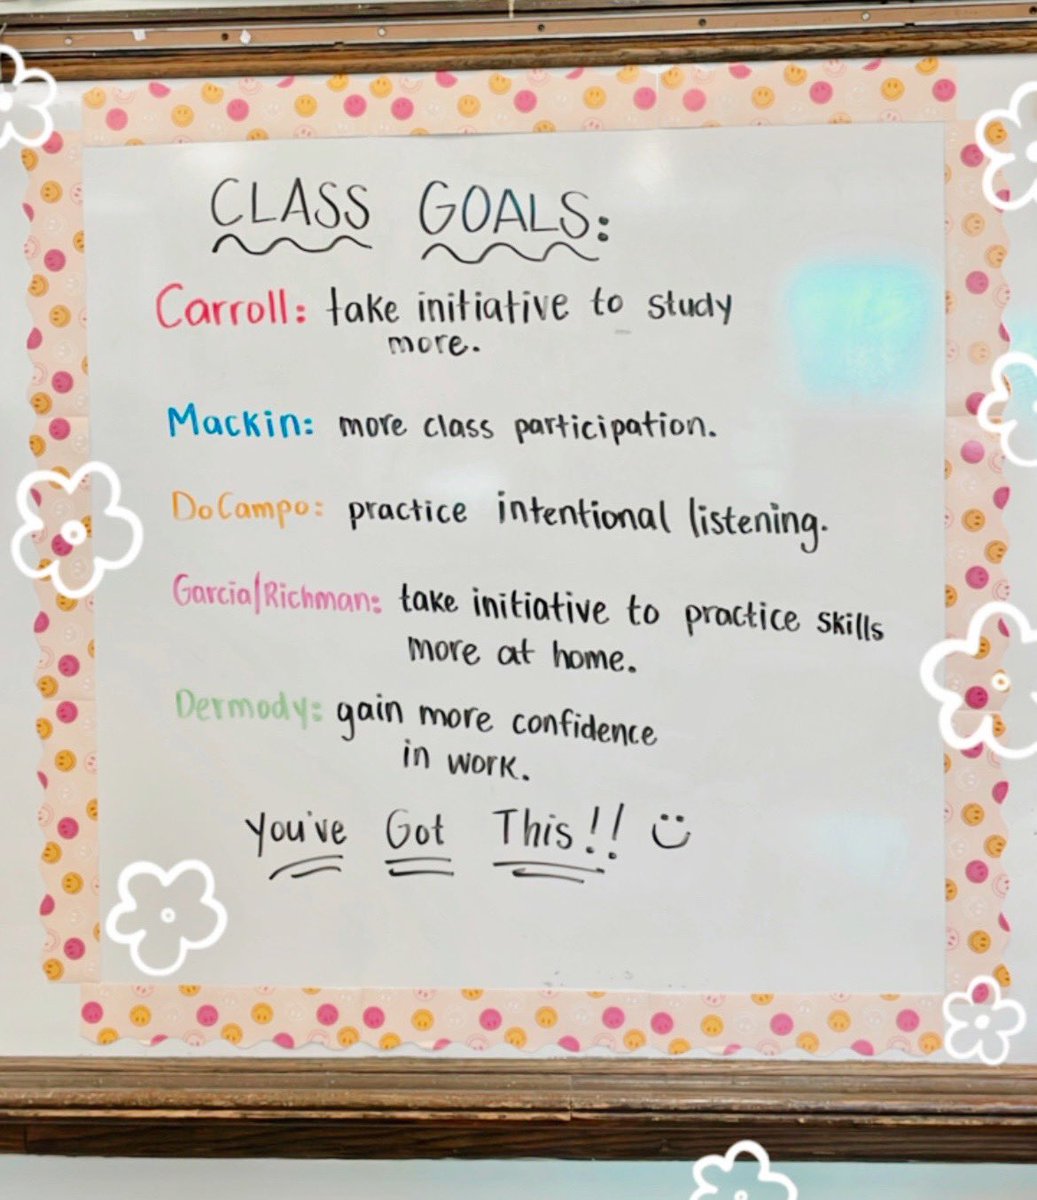 CLASS GOALS:
Carroll: take initiative to study
more.
Mackin: more class participation.
DoCampo: practice intentional listening.
Garcia/Richman: take initiative to practice skills
more at home.
Dermody: gain more confidence
in work.
You've Got This!! :)